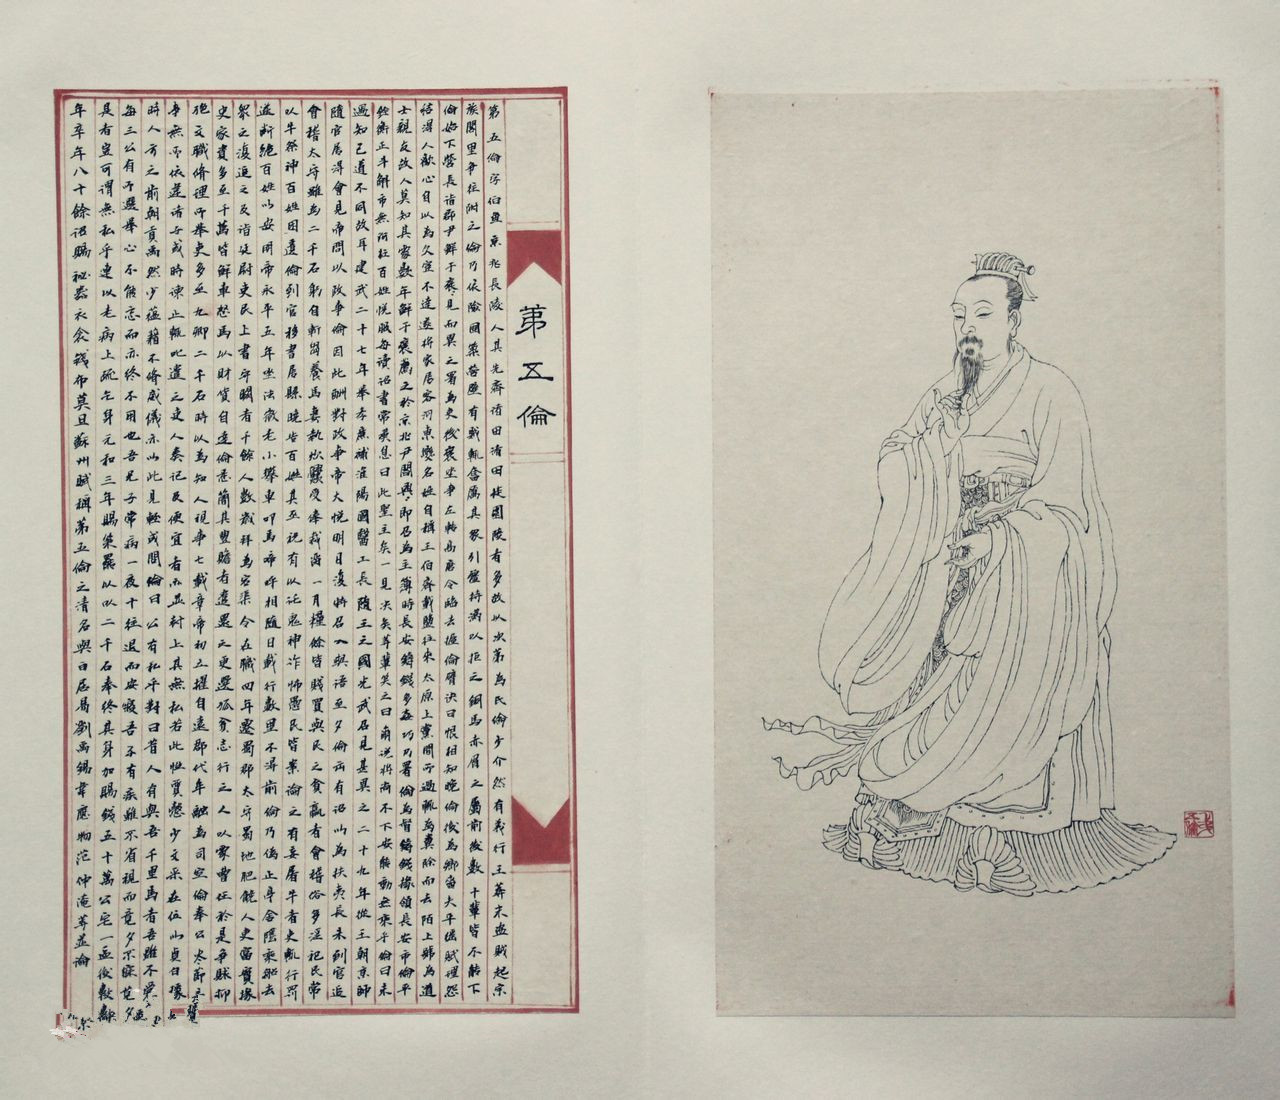 第五倫
第五倫字伯魚京兆長陵人其先齊諸田諸田徙園陵者多故以次第為氏倫少介然有義行王莽末盜賊起宗
族閭里爭往附之倫乃依險固築營壁有賊輒奮厲其眾引彊持滿以拒之銅馬赤眉之屬前後數十輩皆不能下
倫始下營長詣郡尹鮮于褒見而異之署為吏後褒坐事左轉高唐令臨去握倫臂訣曰恨相知晚倫後為鄉嗇夫平徭賦理怨
結得人歡心自以為久宦不達遂將家居客河東變名姓自稱王伯齊載鹽往來太原上黨間所過輒為糞除而去陌上號為道
士親友故人莫知其家數年鮮于褒薦之於京兆尹閻興即召為主簿時長安鑄錢多姦巧乃署倫為督鑄錢掾領長安市倫平
銓衡正斗斛市無阿枉百姓悅服每讀詔書常歎息曰此聖主矣一見決矣等輩笑之曰爾說將尚不下安能動萬乘乎倫曰未
遇知己道不同故耳建武二十七年舉孝廉補淮陽國醫工長隨王之國光武召見甚異之二十九年從王朝京師
隨官屬得會見帝問以政事倫因此酬對政事帝大悅明日復特召入與語至夕倫出有詔以為扶夷長未到官追
會稽太守雖為二千石躬自斬芻養馬妻執炊爨受俸裁留一月糧餘皆賤貿與民之貧羸者會稽俗多淫祀民常
以牛祭神百姓因遺倫到官移書屬縣曉告百姓其巫祝有以託鬼神詐怖愚民皆案論之有妄屠牛者吏輒行罰
遂斷絕百姓以安明帝永平五年坐法徵老小攀車叩馬啼呼相隨日裁行數里不得前倫乃偽止亭舍陰乘船去
眾之復追之及詣廷尉吏民上書守闕者千餘人數歲拜為宕渠令在職四年遷蜀郡太守蜀地肥饒人吏富實掾
史家貲多至千萬皆鮮車怒馬以財貨自達倫悉簡其豐贍者遣還之更選孤貧志行之人以處曹任於是爭賕抑
絕文職修理所舉吏多至九卿二千石時以為知人視事七載章帝初立擢自遠郡代牟融為司空倫奉公盡節言
事無所依違諸子或時諫止輒叱遣之吏人奏記及便宜者亦並封上其無私若此性質愨少文采在位以貞白稱
時人方之前朝貢禹然少蘊藉不修威儀亦以此見輕或問倫曰公有私乎對曰昔人有與吾千里馬者吾雖不受
每三公有所選舉心不能忘而亦終不用也吾兄子常病一夜十往退而安寢吾子有疾雖不省視而竟夕不寐若
是者豈可謂無私乎連以老病上疏乞身元和三年賜策罷以二千石奉終其身加賜錢五十萬公宅一區後數歲
年卒年八十餘詔賜祕器衣衾錢布莫旦蘇州賦稱第五倫之清名與白居易劉禹錫韋應物范仲淹等並論